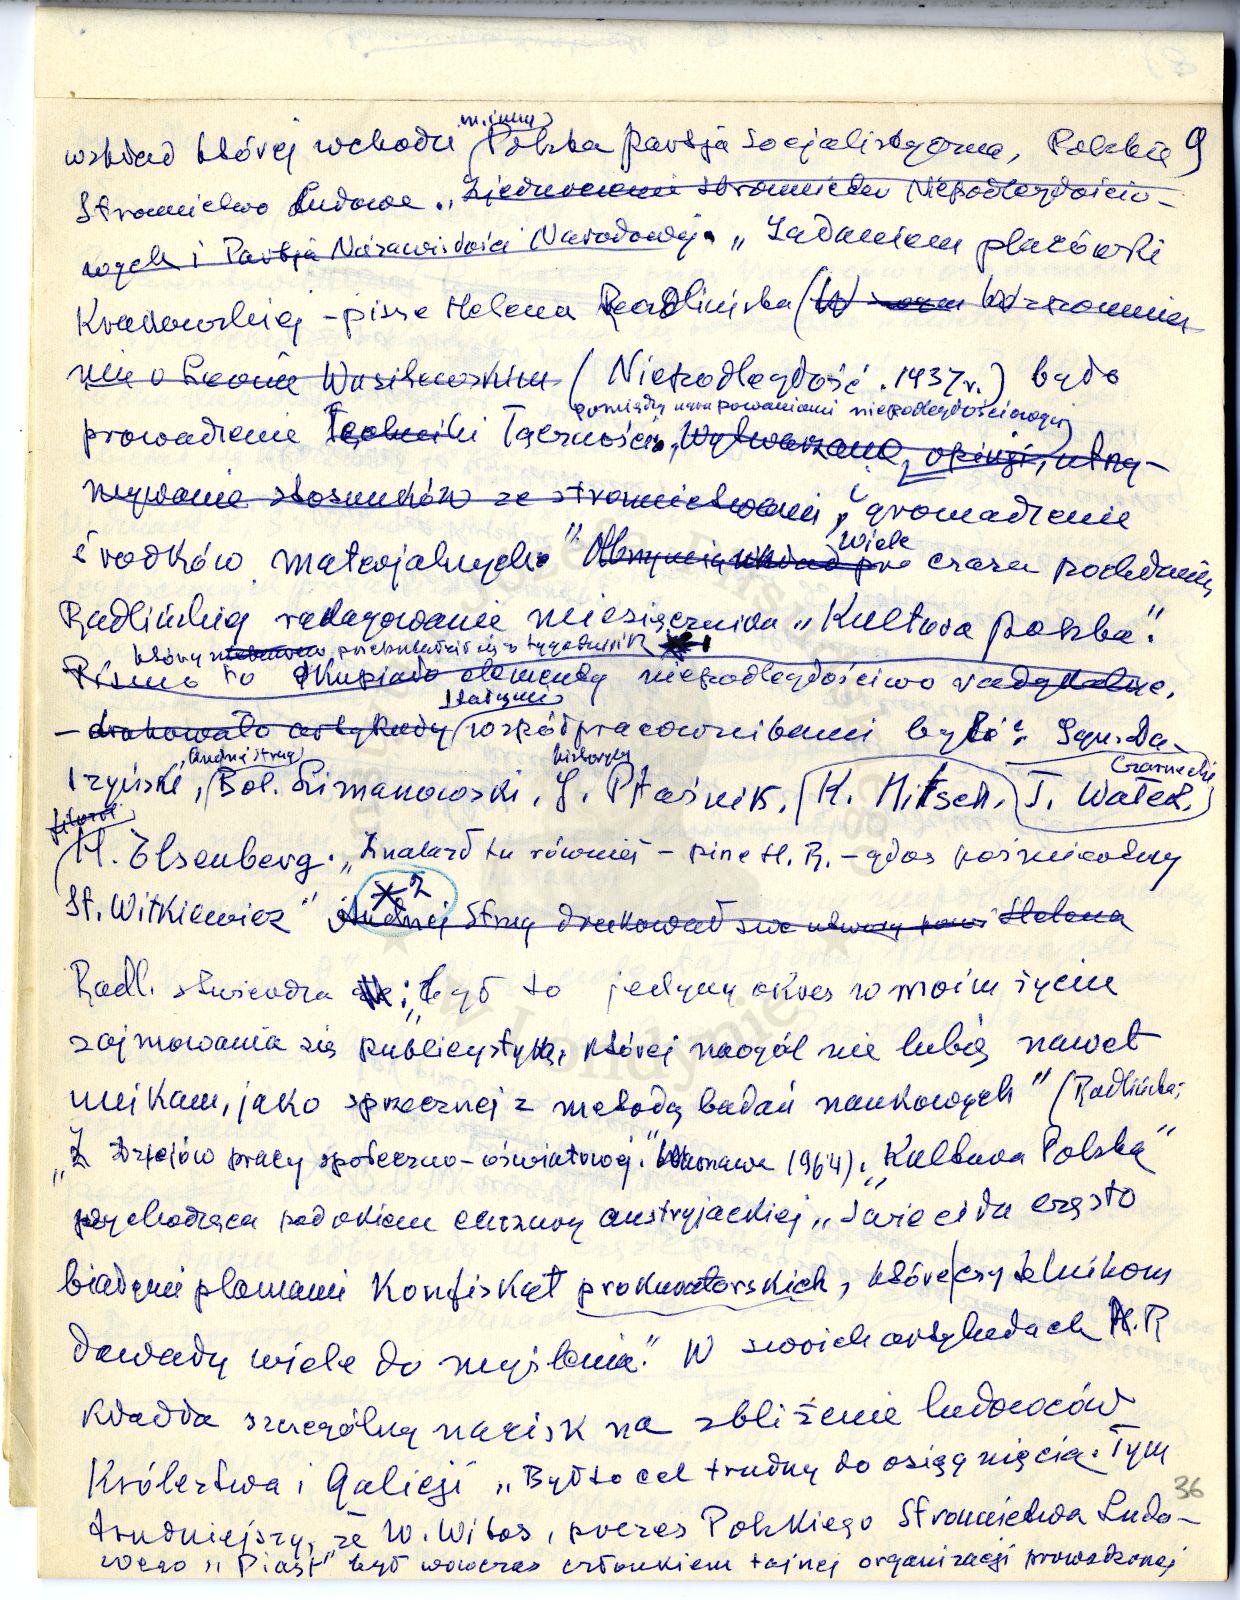 m. innymi
wskład której wchodzi Polska partja socjalistyczna, Polskie 9
Stronnictwo Ludowe. „Zjednoczenie stronnictw Niepodległościo-
wych i Partja Niezawisłości Narodowej. „Zadaniem placówki
Krakowskiej - pisze Helena Radlińska (W Wspomnie
nie o Leonie Wasilewskim (Niepodległość. 1937 r.) było
pomiędzy ugrupowaniami niepodległościowymi
prowadzenie łączności, wytwarzanie opinji, utrzy-
mywanie stosunków ze stronnictwami, i gromadzenie
środków materjalnych." wiele czasu pochłaniało
Radlińskiej redagowanie miesięcznika „Kultura polska".
który przekształcił się z tygodnik *1
Pismo to skupiało elementy niepodległościowo radykalne,
stałymi
- drukowało artykuły współpracownikami byli: Ign. Da-
Andrzej Strug historycy Czarnecki
szyński, Bol. Limanowski, J. Ptaśnik, K. Nitsch, J. Wałek,
filozof
H. Elzenberg. „Znalazł tu również - pisze H. R. - głos pośmiertny
St. Witkiewicz" *2 Andrzej Strug drukował swe utwory Helena
Radl. stwierdza : „był to jedyny okres w moim życiu
zajmowania się publicystyką, której naogół nie lubię nawet
unikam, jako sprzecznej z metodą badań naukowych" (Radlińska:
„Z dziejów pracy społeczno-oświatowej." Warszawa 1964). „Kultura Polska"
wychodząca pod okiem cenzury austryjackiej „świeciła często
białymi plamami konfiskat prokuratorskich, które czytelnikom
dawały wiele do myślenia." W swoich artykułach H. R
kładła szczególny nacisk na zbliżenie ludowców
Królestwa i Galicji „Był to cel trudny do osiągnięcia. Tym
36
trudniejszy, że W. Witos, prezes Polskiego Stronnictwa Ludo-
wego „Piast" był wówczas członkiem tajnej organizacji prowadzonej